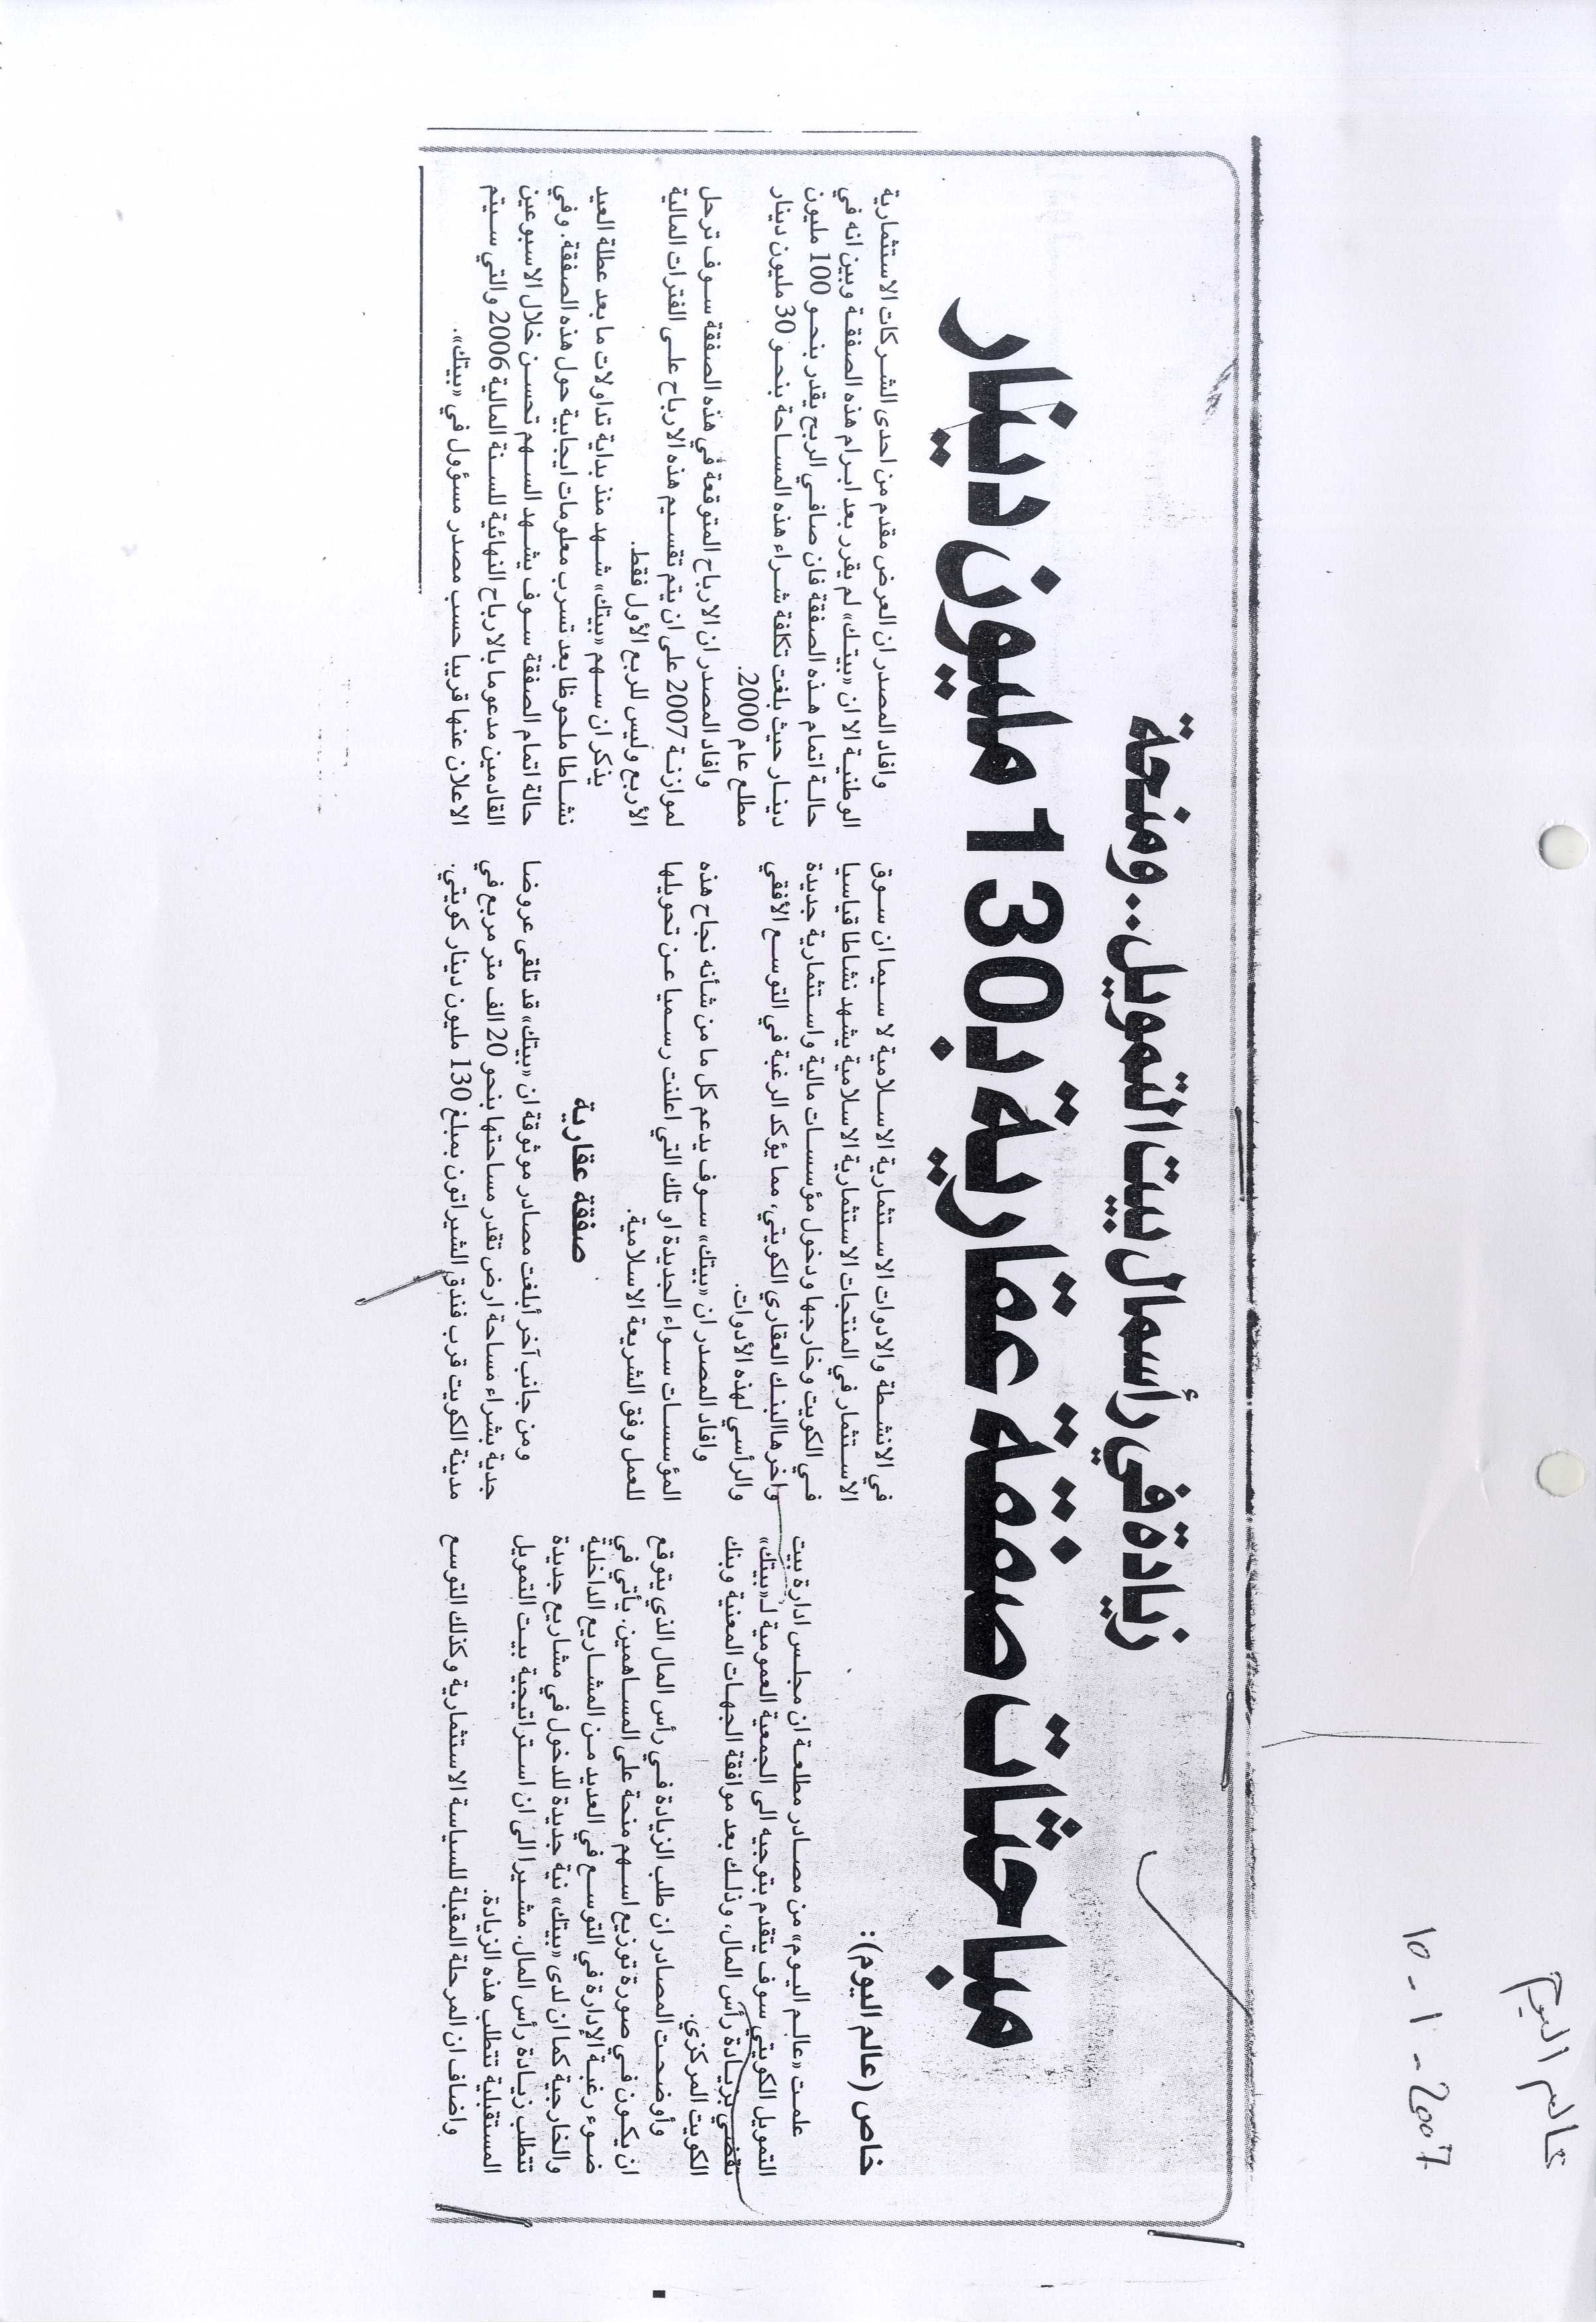 عالم اليوم
10-1-2007
زيادة في رأسمال بيت التمويل.. ومنحة
مباحثات صفقة عقارية بـ130 مليون دينار
خاص (عالم اليوم):
علمت «عالم اليوم» من مصادر مطلعة ان مجلس ادارة بيت
التمويل الكويتي سوف يتقدم بتوجيه الى الجمعية العمومية لـ«بيتك»
تقضي بزيادة رأس المال، وذلك بعد موافقة الجهات المعنية وبنك
الكويت المركزي.
وأوضحت المصادر ان طلب الزيادة في رأس المال الذي يتوقع
ان يكون في صورة توزيع اسهم منحة على المساهمين، يأتي في
ضوء رغبة الإدارة في التوسع في العديد من المشاريع الداخلية
والخارجية كما ان لدى «بيتك» نية جديدة للدخول في مشاريع جديدة
تتطلب زيادة رأس المال، مشيرا الى ان استراتيجية بيت التمويل
المستقبلية تتطلب هذه الزيادة.
واضاف ان المرحلة المقبلة للسياسة الاستثمارية وكذلك التوسع
في الانشطة والادوات الاستثمارية الاسلامية لا سيما ان سوق
الاستثمار في المنتجات الاستثمارية الاسلامية يشهد نشاطا قياسيا
في الكويت وخارجها ودخول مؤسسات مالية واستثمارية جديدة
واخرها البنك العقاري الكويتي، مما يؤكد الرغبة في التوسع الأفقي
والرأسي لهذه الأدوات.
وافاد المصدر ان «بيتك» سوف يدعم كل ما من شأنه نجاح هذه
المؤسسات سواء الجديدة او تلك التي اعلنت رسميا عن تحويلها
للعمل وفق الشريعة الاسلامية.
صفقة عقارية
ومن جانب آخر أبلغت مصادر موثوقة ان «بيتك» قد تلقى عروضا
جدية بشراء مساحة ارض تقدر مساحتها بنحو 20 الف متر مربع في
مدينة الكويت قرب فندق الشيراتون بمبلغ 130 مليون دينار كويتي.
وافاد المصدر ان العرض مقدم من احدى الشركات الاستثمارية
الوطنية الا ان «بيتك» لم يقرر بعد ابرام هذه الصفقة وبين انه في
حالة اتمام هذه الصفقة فان صافي الربح يقدر بنحو 100 مليون
دينار حيث بلغت تكلفة شراء هذه المساحة بنحو 30 مليون دينار
مطلع عام 2000.
وافاد المصدر ان الارباح المتوقعة في هذه الصفقة سوف ترحل
لموازنة 2007 على ان يتم تقسيم هذه الارباح على الفترات المالية
الأربع وليس للربع الأول فقط.
يذكر ان سهم «بيتك» شهد منذ بداية تداولات ما بعد عطلة العيد
نشاطا ملحوظا بعد تسرب معلومات ايجابية حول هذه الصفقة. وفي
حالة اتمام الصفقة سوف يشهد السهم تحسن خلال الاسبوعين
القادمين مدعوما بالارباح النهائية للسنة المالية 2006 والتي سيتم
الاعلان عنها قريبا حسب مصدر مسؤول في «بيتك».